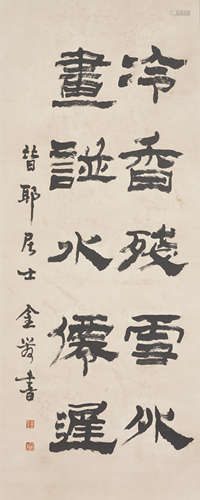 冷香殘雪外
畫誕水僊遲
昔耶居士金農書